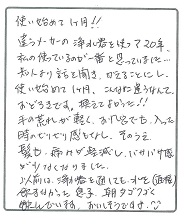 使い始めて1ヶ月!!
違うメーカーの浄水器を使って20年、
私の使っているのが一番と思っていました…
知人より話を聞き、かえることにし
使い始めて1ヶ月、こんなに違うなんて
おどろきです。換えてよかった!!
手の荒れが軽く、お風呂でも、入った
時のピリピリ感もなし、そのうえ
髪も、痒みが軽減し、パサパサ感
が少なくなりました。
人前は、浄水器を通しても、水を
飲まなかった息子、朝ゴクゴク
飲んでいます。おいしそうです。